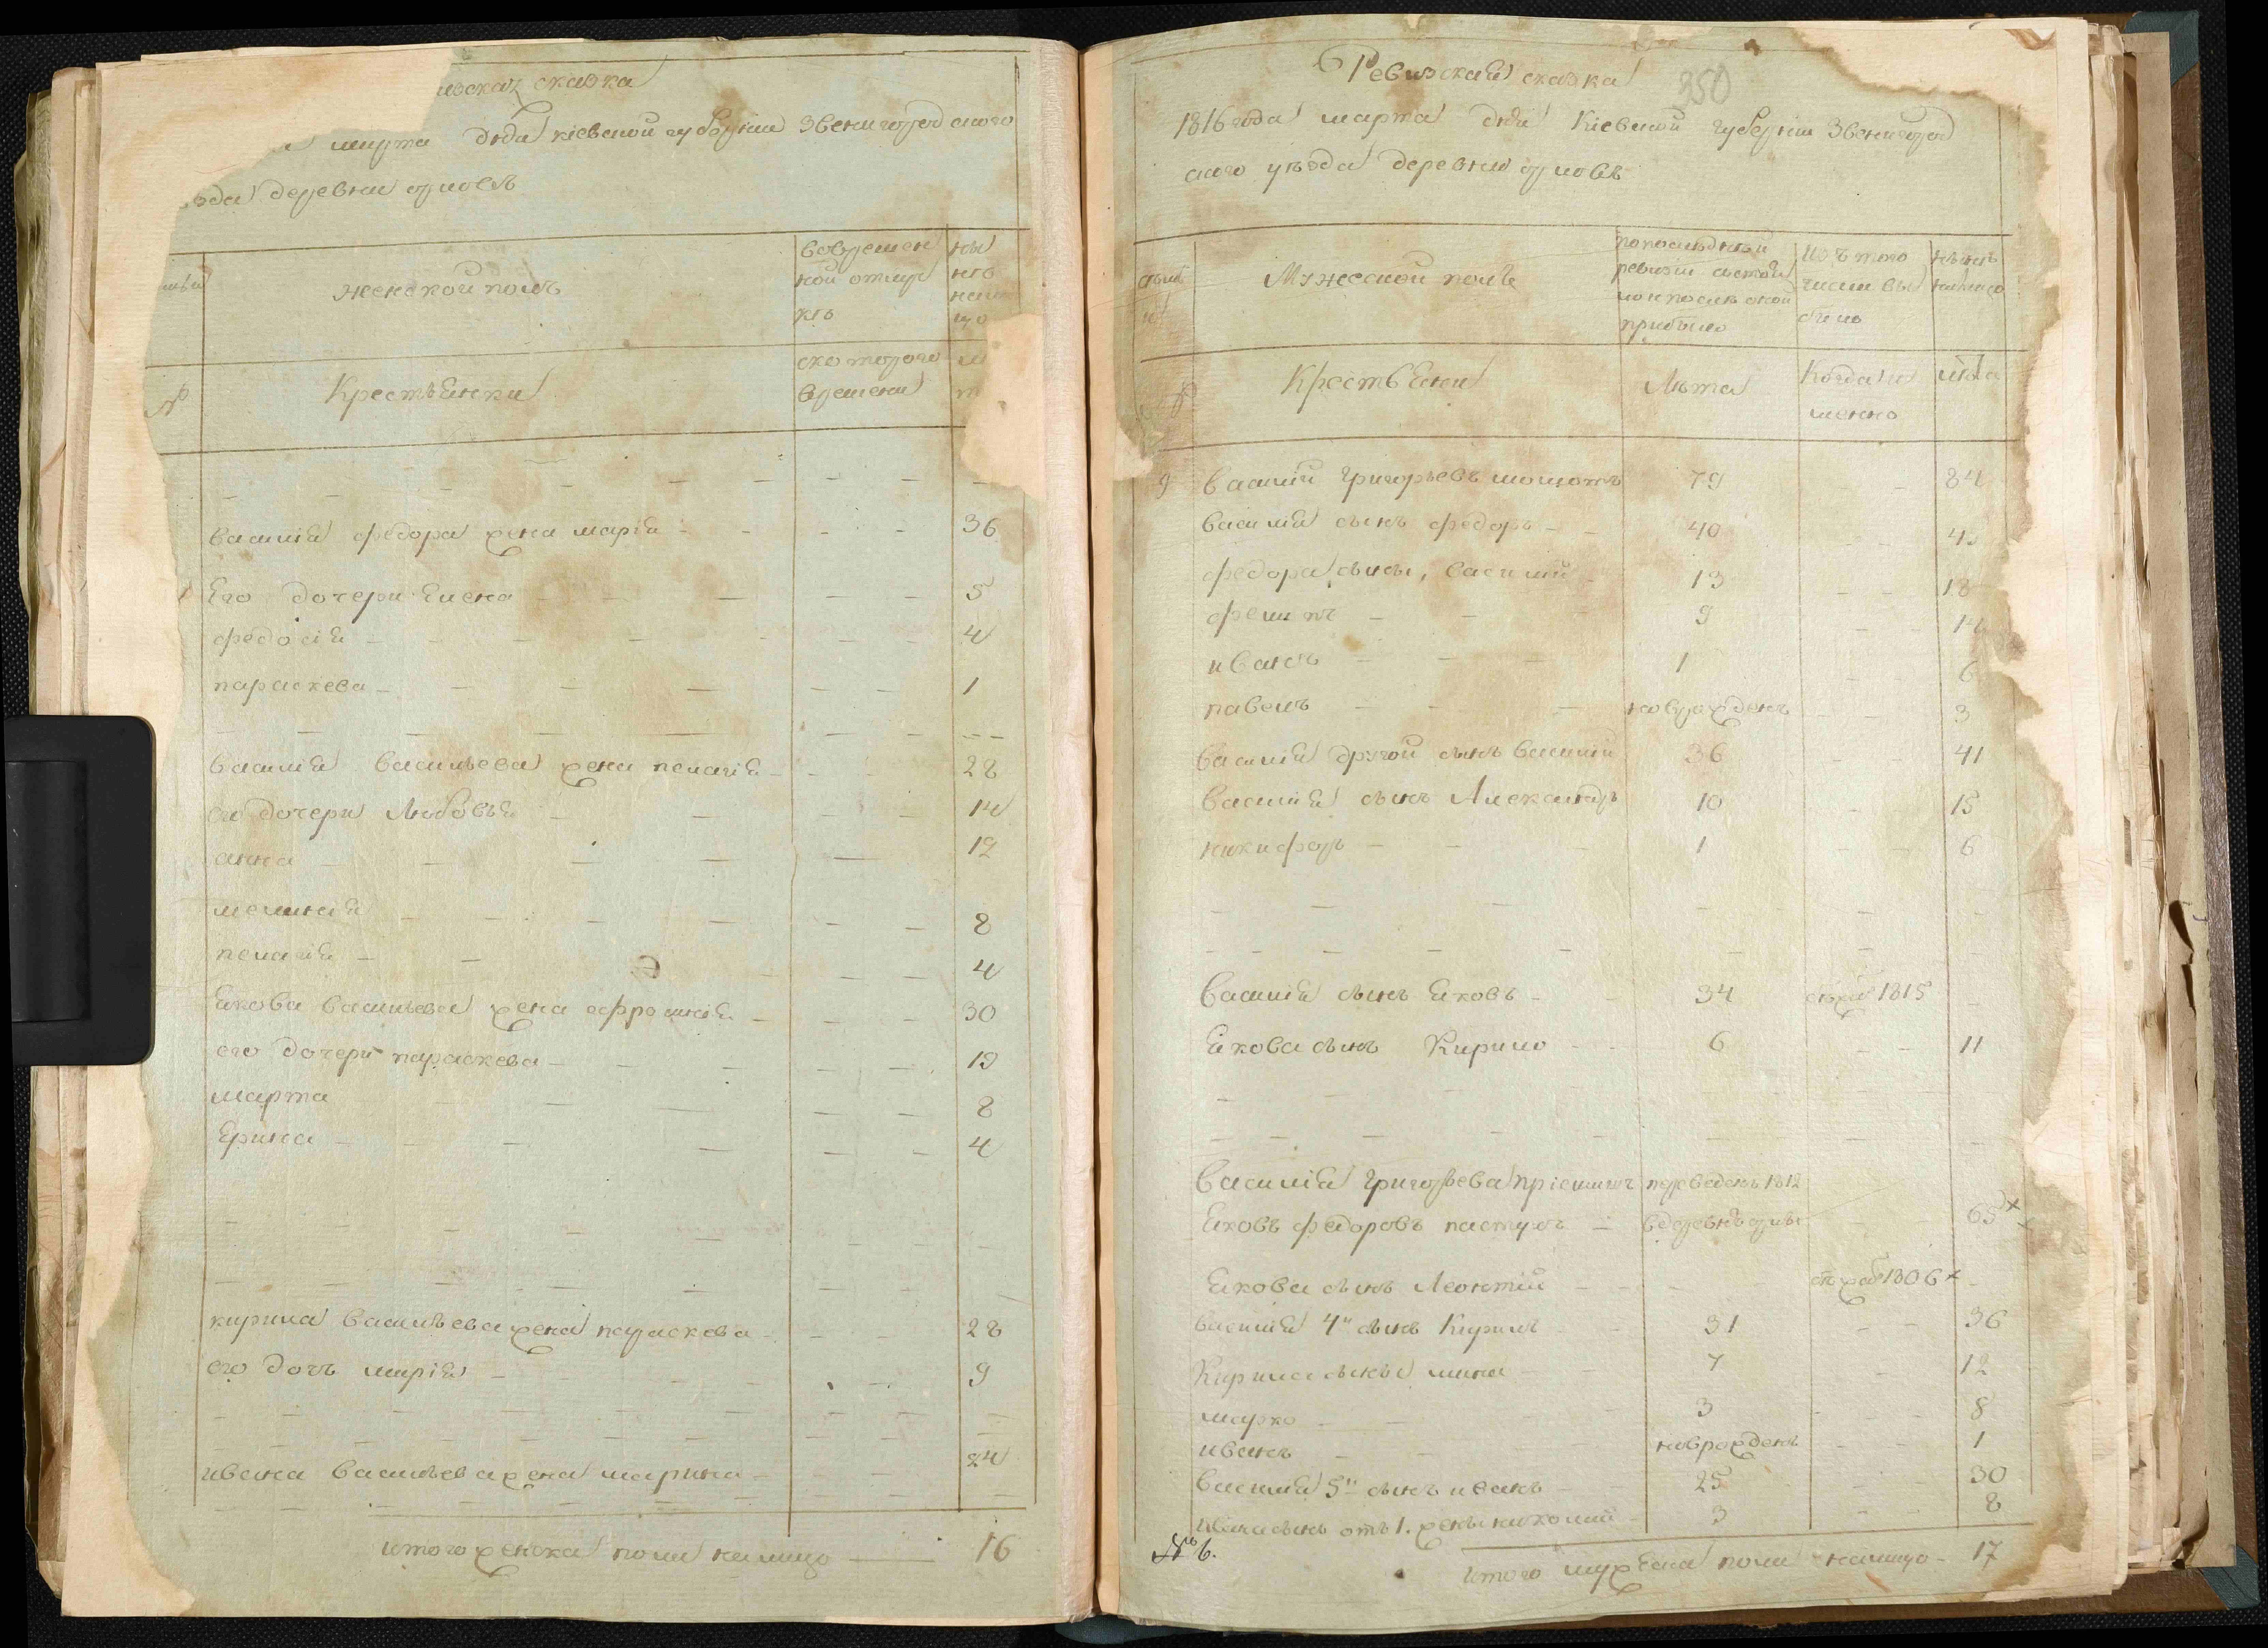 скаꙗ сказка
марта дня кіевской губерніи Звенигородского
ѣзда деревни
женской полъ
вовремен
ной отлуч
кѣ
ны
нѣ
Крестьянки
скоторого
времени
василія федора жена марія - - - - 36
Его дочери Елена - - - - 5
федосія - - - - 4
параскева - - - - 1
василія васильева жена пелагія - - 28
его дочери Любовья - - - 14
анна - - - - 12
меланія - - - - 8
пелагія - - - - 4
якова васильева жена ефросинія - - - 30
его дочери параскева - - - 13
марта - - - - 8
Ерина - - - - 4
кирила васильева жена параскева - - - 28
его дочь марія - - - - 9
ивана васильева жена марина - - - 24
итого женска пола налицо — 16
Ревизская сказка
350
1816 года марта дня Кіевской губерніи Звенигород
ского уѣзда деревни
Мужеской полъ
попоследней
ревизіи состо
яло и послѣ оной
прибыло
Изъ того
числа вы
было
нынѣ
налицо
№
Крестьяни
Лѣта
Когда и
менно
лѣта
9 василій григорьевъ 79 - - 84
василія сынъ федоръ - - 40 - - 45
федора сыны, василій - 13 - - 18
филипъ - - - 9 - - 14
иванъ - - - 1 - - 6
павелъ - - - новорожденъ - - 3
василія другой сынъ василій 36 - 41
василія сынъ Александръ 10 - 15
никифоръ - - - 1 - - 6
василія сынъ яковъ - - 34 1815 -
якова сынъ Кирило - - 6 - - 11
василія григорьева пріемышъ переведенъ 1812
яковъ федоровъ пастухъ - вдеревню - 65 х
якова сынъ Леонтій - - - 1806 х -
василія 4й сынъ Кирилъ - - 31 - - 36
Кирила сыны мина - - 7 - 12
марко - - - 3 - - 8
иванъ - - - новорожденъ - - 1
василія 5й сынъ иванъ - - 25 - 30
ивана сынъ отъ 1. жены - 3 - 8
№ 6.
итого мужеска пола налицо - 17